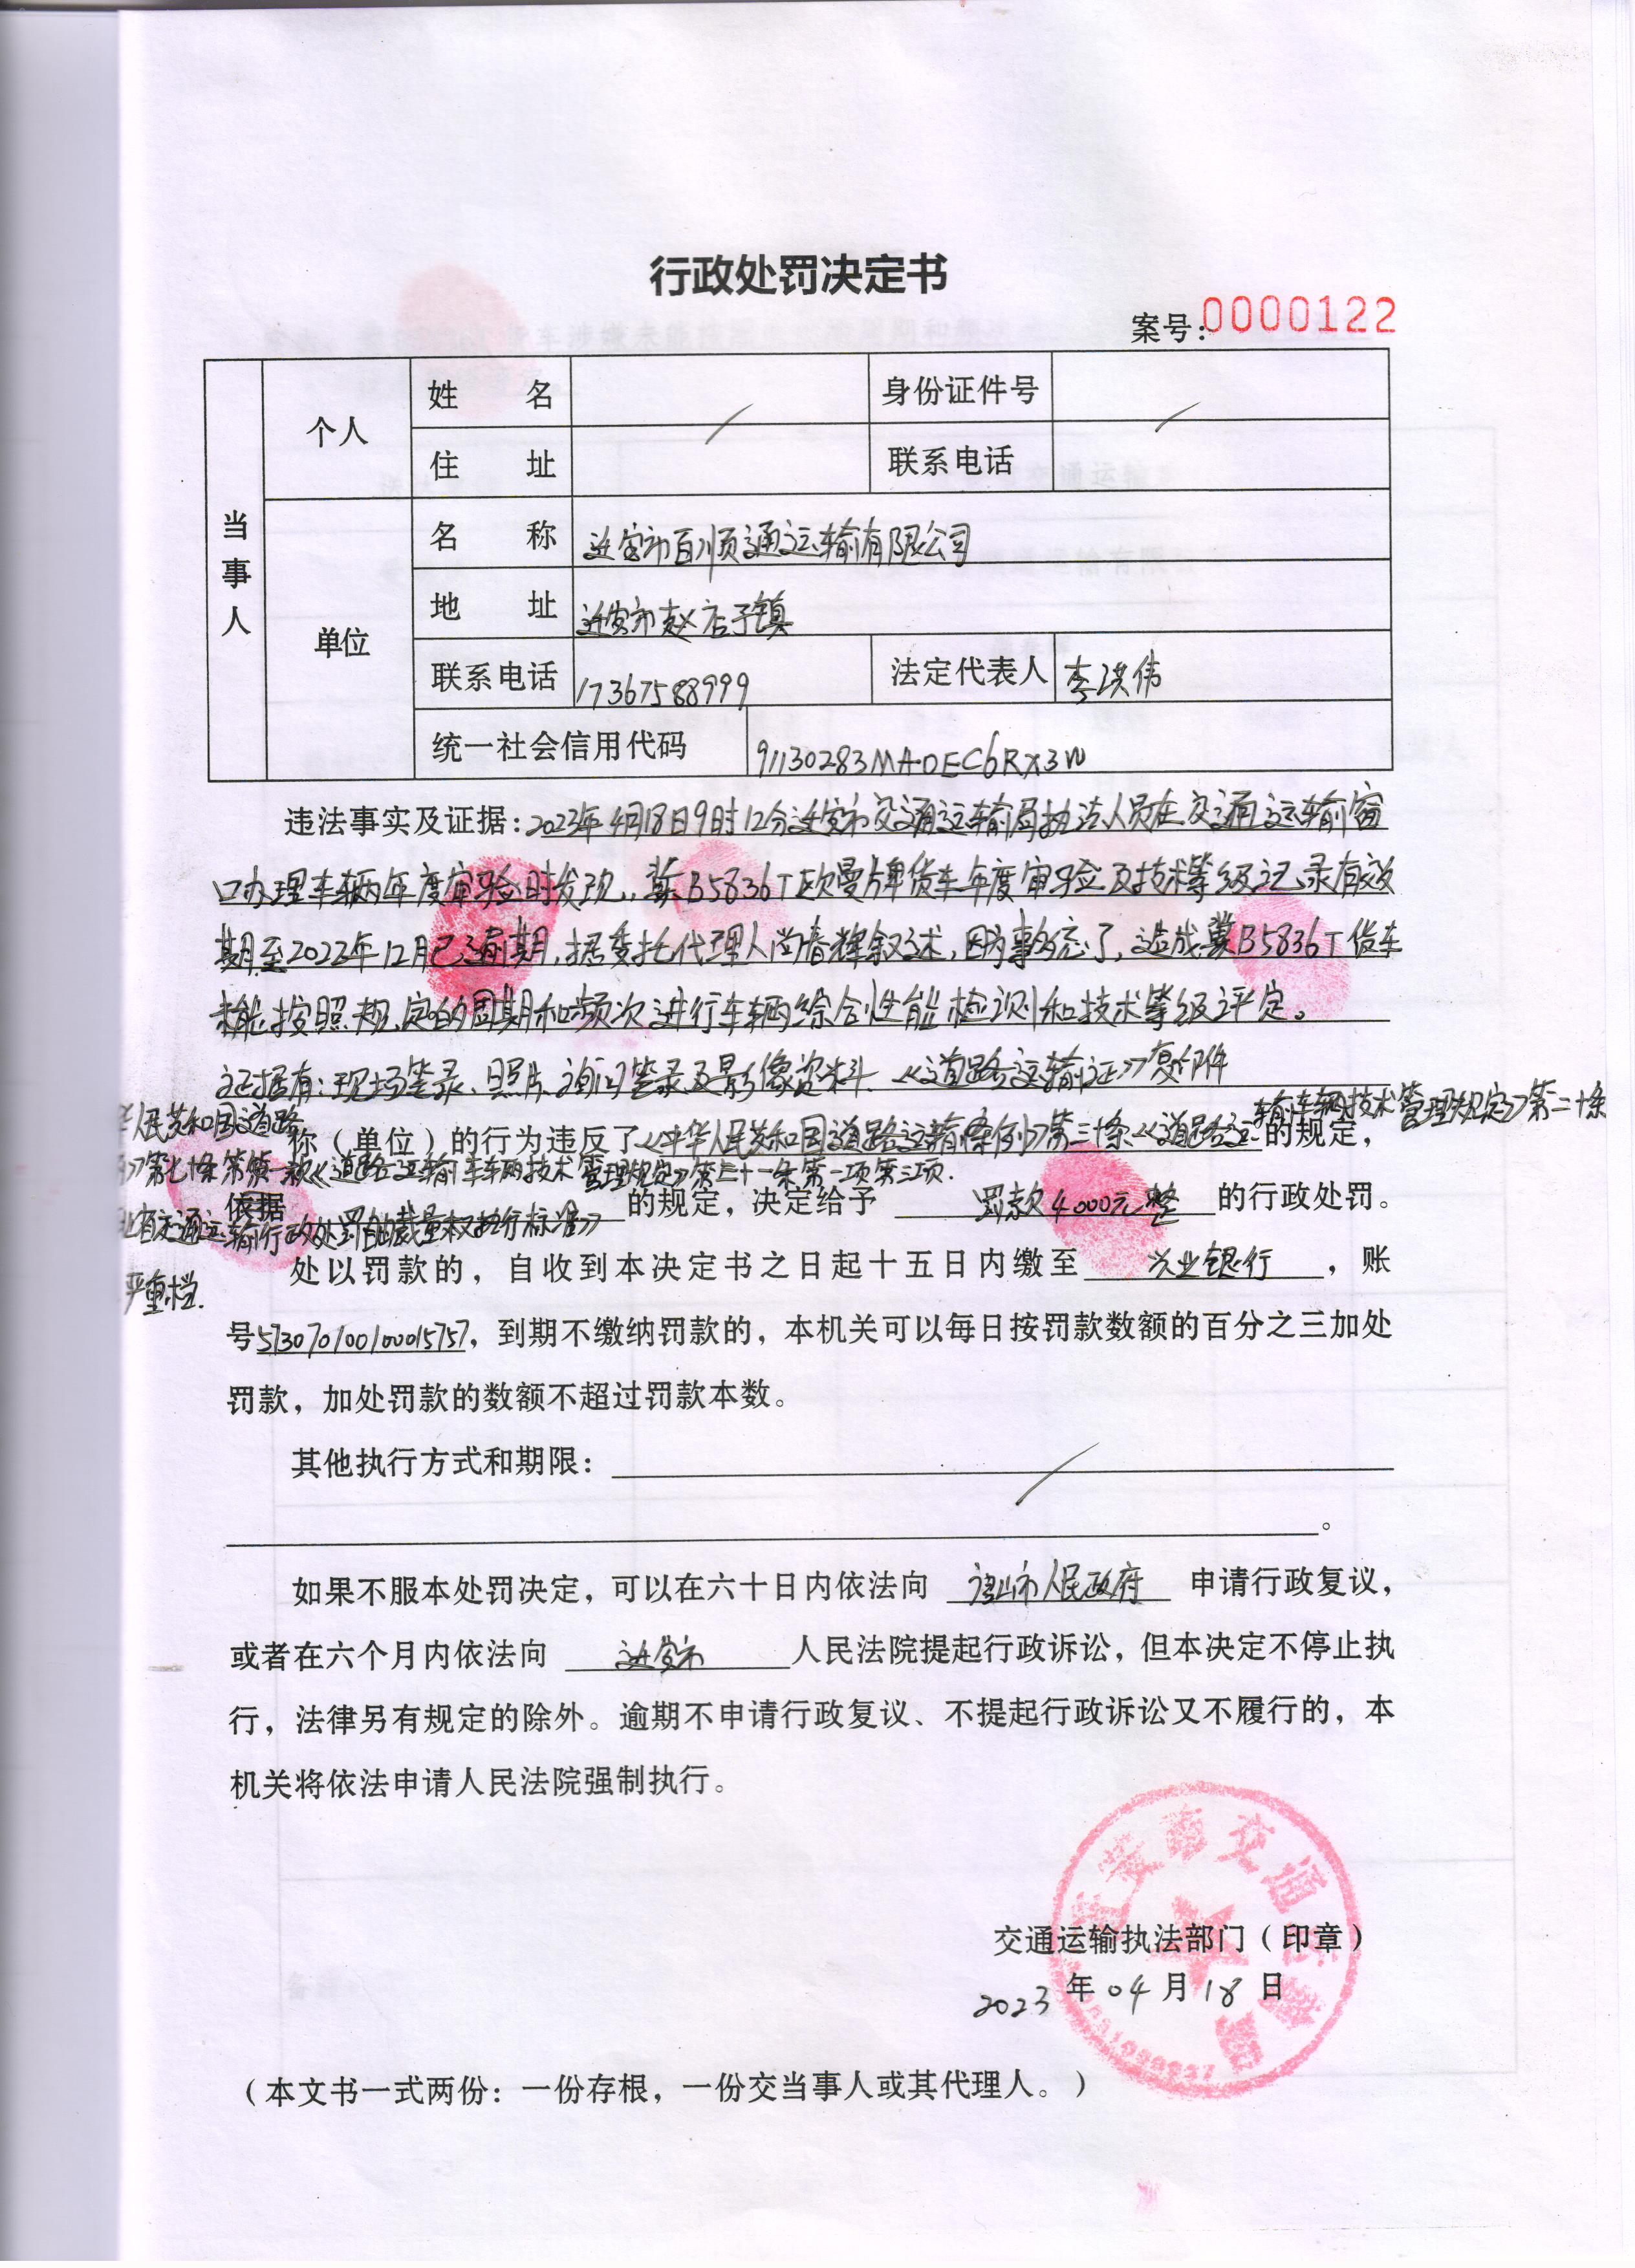 行政处罚决定书
案号:0000122
当事人
个人
姓名
身份证件号
住址
联系电话
单位
名称 迁安市百顺通运输有限公司
地址 迁安市赵店子镇
联系电话 17367588999 法定代表人 李洪伟
统一社会信用代码 91130283MA0EC6RX3W
违法事实及证据:2023年4月18日9时12分迁安市交通运输局执法人员在交通运输窗
口办理车辆年度审验时发现,冀B5836T欧曼牌货车年度审验及技术等级记录有效
期至2022年12月已逾期,据委托代理人尚春辉叙述,因为事多忘了,造成冀B5836T货车
未能按照规定的周期和频次进行车辆综合性能检测和技术等级评定。
证据有:现场笔录、照片、询问笔录及影像资料、《道路运输证》复印件
你(单位)的行为违反了《中华人民共和国道路运输条例》第三十条《道路运输车辆技术管理规定》第二十条的规定,
依据
华人民共和国道路
例》第七十条第一款《道路运输车辆技术管理规定》第三十一条第一项第三项.
北省交通运输行政处罚自由裁量权执行标准》
严重档.
的规定,决定给予 罚款4000元整 的行政处罚。
处以罚款的,自收到本决定书之日起十五日内缴至 兴业银行 ,账
号573070100100015757,到期不缴纳罚款的,本机关可以每日按罚款数额的百分之三加处
罚款,加处罚款的数额不超过罚款本数。
其他执行方式和期限:
。
如果不服本处罚决定,可以在六十日内依法向 唐山市人民政府 申请行政复议,
或者在六个月内依法向 迁安市 人民法院提起行政诉讼,但本决定不停止执
行,法律另有规定的除外。逾期不申请行政复议、不提起行政诉讼又不履行的,本
机关将依法申请人民法院强制执行。
迁安市交通运输局
交通运输执法部门(印章)
2023年04月18日
(本文书一式两份:一份存根,一份交当事人或其代理人。)